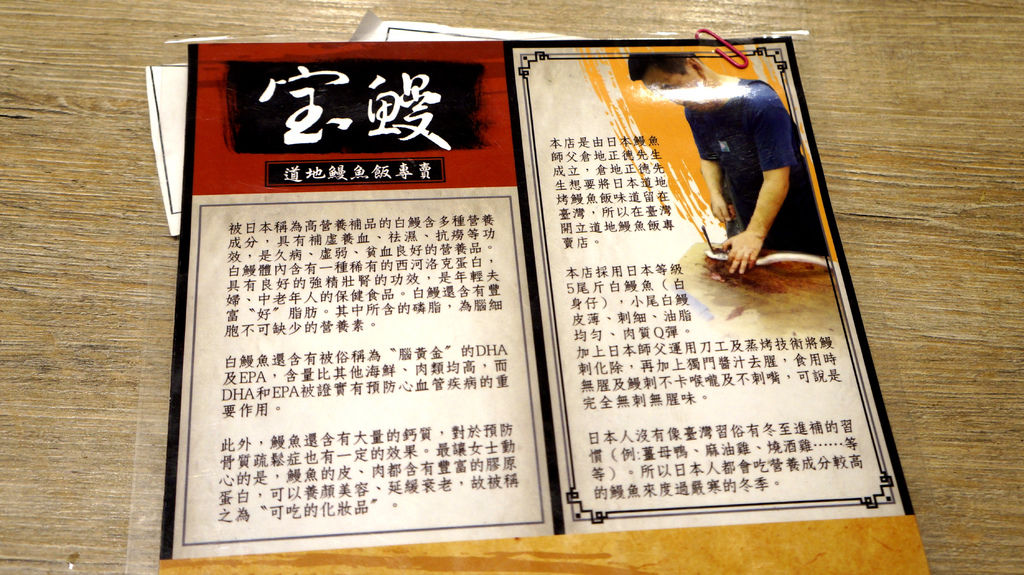 宝鰻
道地鰻魚飯專賣
被日本稱為高營養補品的白鰻含多種營養
成分，具有補虛養血、祛濕、抗癆等功
效，是久病、虛弱、貧血良好的營養品。
白鰻體內含有一種稀有的西河洛克蛋白，
具有良好的強精壯腎的功效，是年輕夫
婦、中老年人的保健食品。白鰻還含有豐
富〝好〞脂肪。其中所含的磷脂，為腦細
胞不可缺少的營養素。
白鰻魚還含有被俗稱為〝腦黃金〞的DHA
及EPA，含量比其他海鮮、肉類均高，而
DHA和EPA被證實有預防心血管疾病的重
要作用。
此外，鰻魚還含有大量的鈣質，對於預防
骨質疏鬆症也有一定的效果。最讓女士動
心的是，鰻魚的皮、肉都含有豐富的膠原
蛋白，可以養顏美容、延緩衰老，故被稱
之為〝可吃的化妝品〞。
本店是由日本鰻魚
師父倉地正德先生
成立，倉地正德先
生想要將日本道地
烤鰻魚飯味道留在
臺灣，所以在臺灣
開立道地鰻魚飯專
賣店。
本店採用日本等級
5尾斤白鰻魚（白
身仔），小尾白鰻
皮薄、刺細、油脂
均勻、肉質Q彈。
加上日本師父運用刀工及蒸烤技術將鰻
刺化除，再加上獨門醬汁去腥，食用時
無腥及鰻刺不卡喉嚨及不刺嘴，可說是
完全無刺無腥味。
日本人沒有像臺灣習俗有冬至進補的習
慣（例:薑母鴨、麻油雞、燒酒雞……等
等）。所以日本人都會吃營養成分較高
的鰻魚來度過嚴寒的冬季。